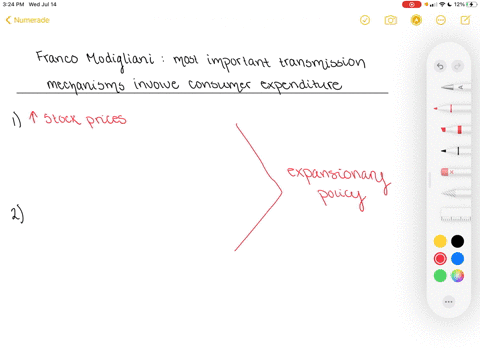 3:24 PM Wed Jul 14
12%
Numerade
Franco Modigliani : most important transmission
mechanisms involve consumer expenditure
1) ↑ stock prices
expansionary
policy
2)